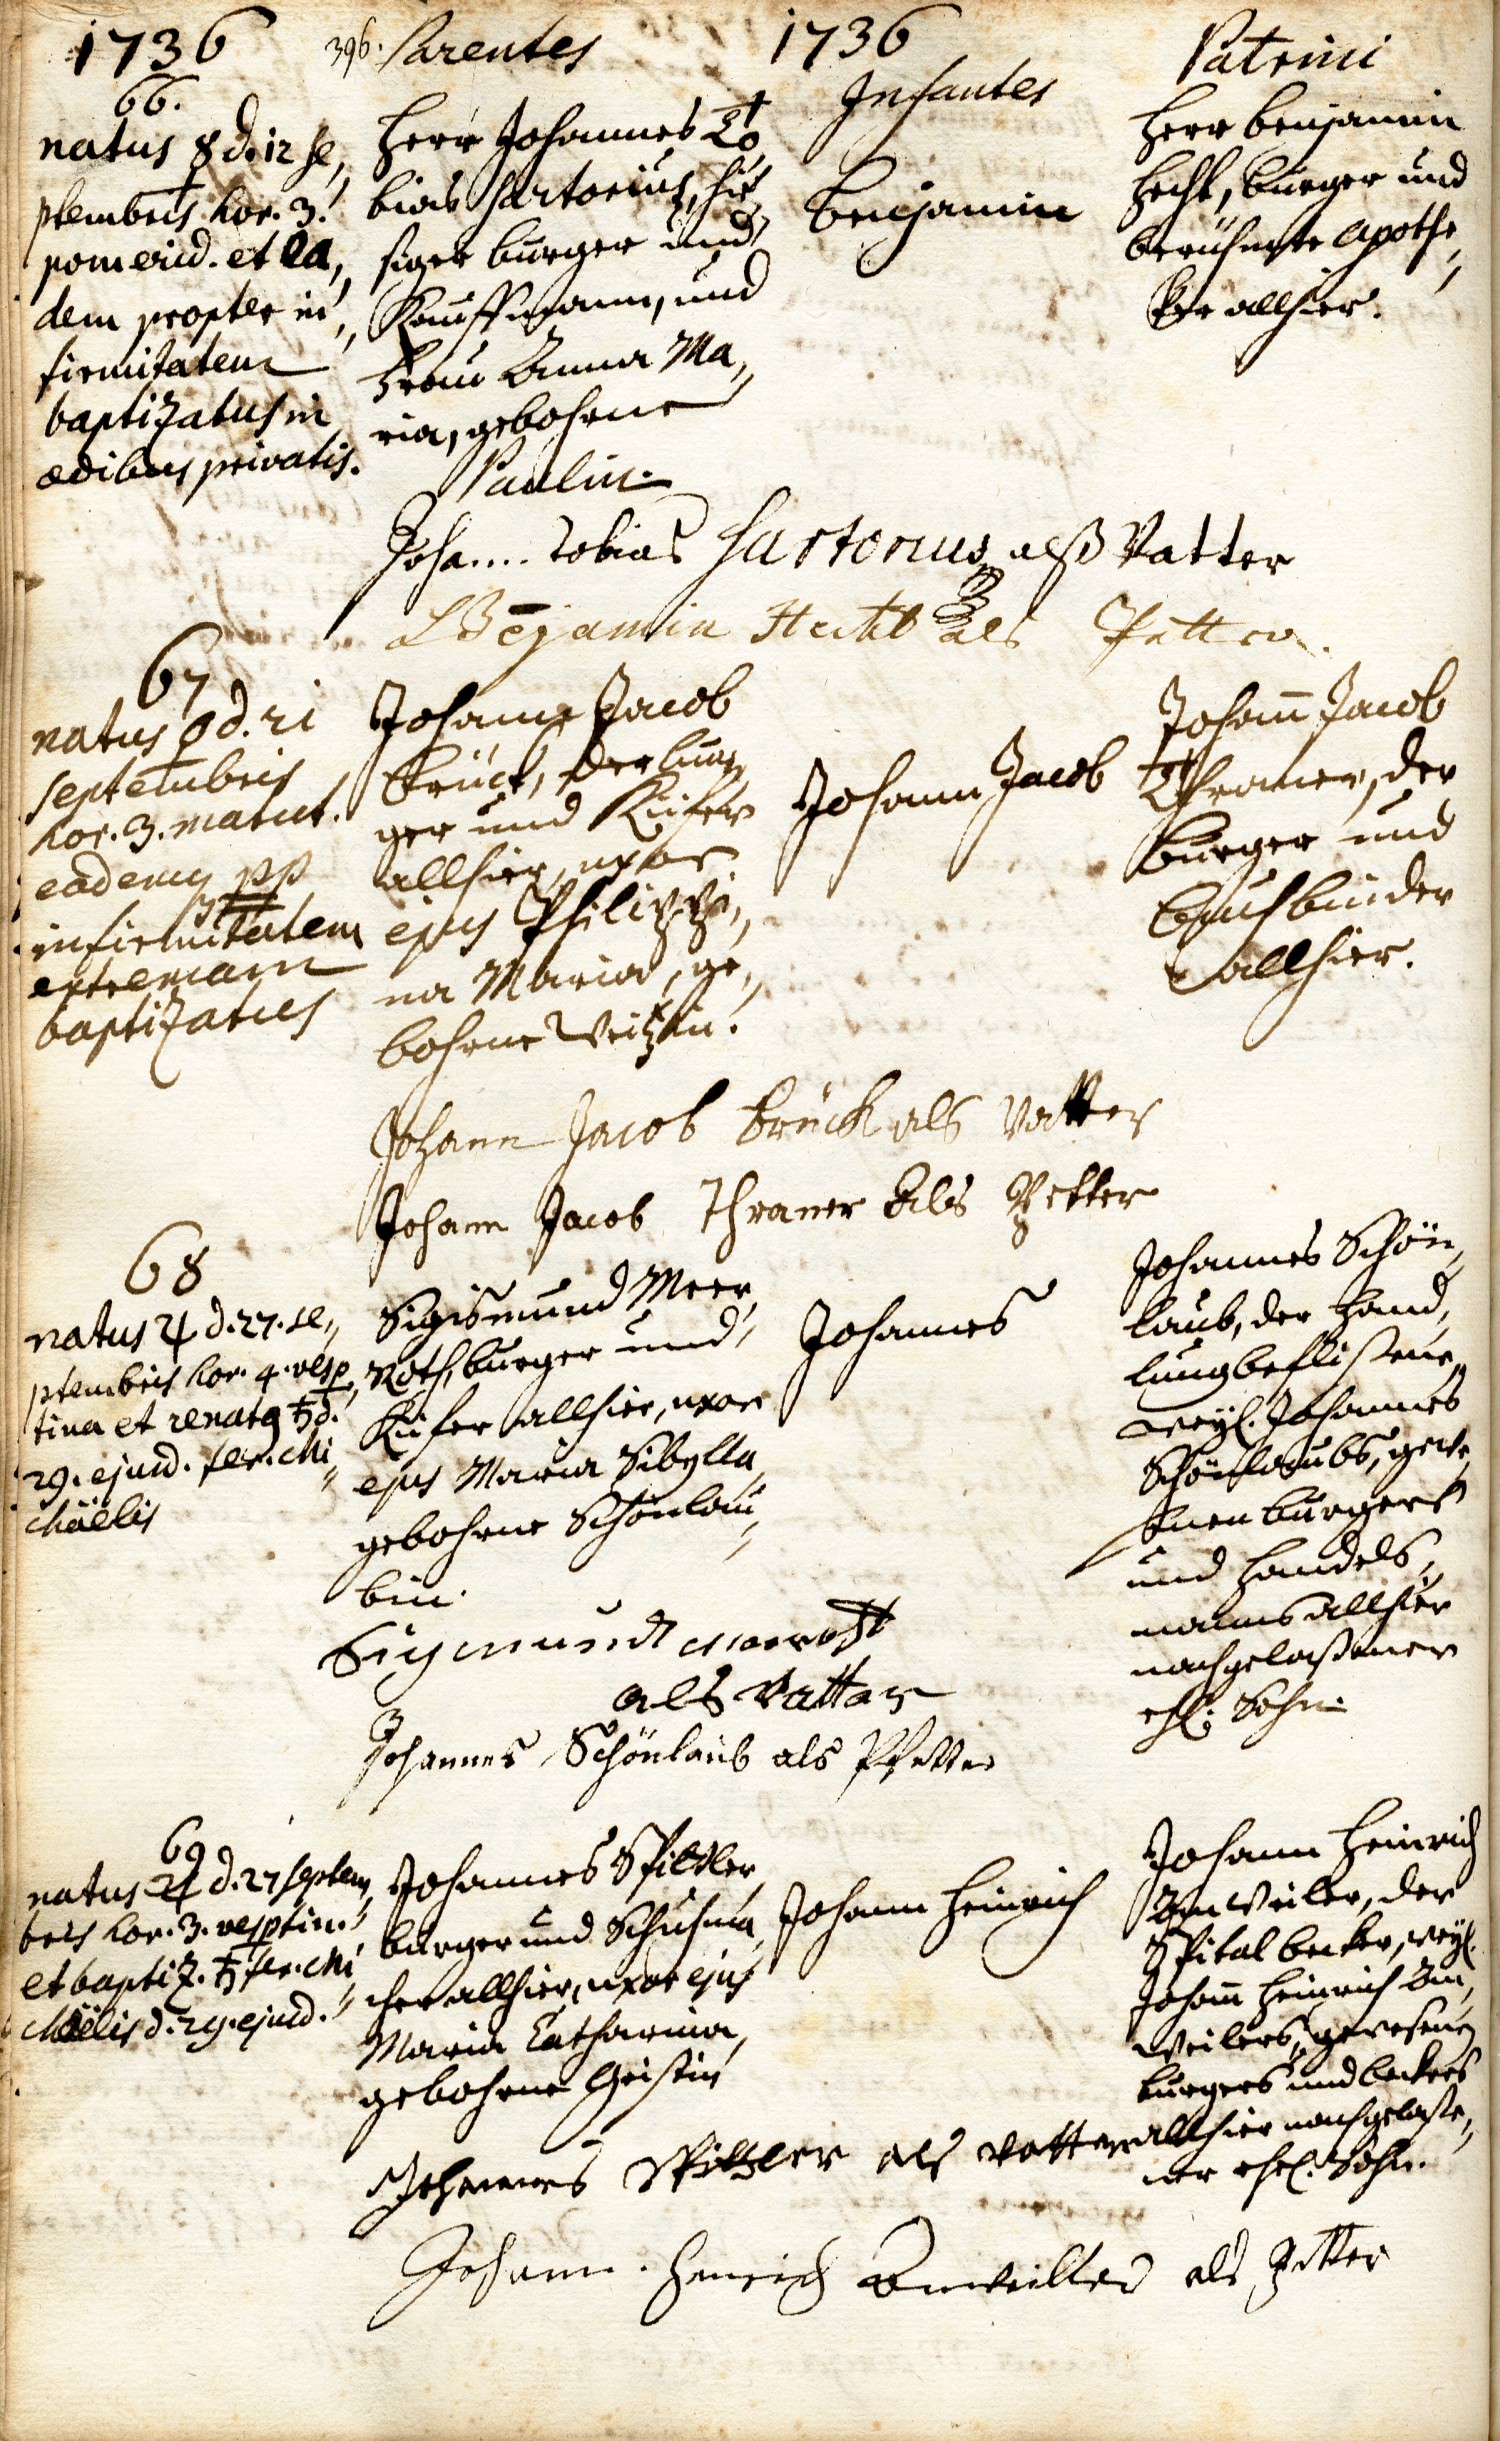 1736
396. Parentes
1736
Infantes
Patrini
66.
natus ☿ d. 12 Se,,
ptembris hor. 3.
pomerid. et ea,,
dem propter in,,
firmitatem
baptizatus in
ædibus privatis.
Herr Johannes To,,
bias Sartorius, hie,,
siger burger und
Kauffmann, und
Frau Anna Ma,,
ria, gebohrne
Paulin.
Benjamin
Herr Benjamin
Hecht, burger und
berühmte Apothe,,
ker allhier.
Joha.... Tobias Sartorius alß Vatter
Benjamin Hecht als Petter.
67
natus d. 21
Septembris
hor. 3. matut.
eadem pp
infirmitatem
extremam
baptizatus
Johann Jacob
Brück, der bur,,
ger und Kiefer
allhier, uxor
ejus Philippi,,
na Maria, ge,,
bohrne Weitzin.
Johann Jacob
Johann Jacob
Thraner, der
burger und
Buchbinder
allhier.
Johann Jacob Brück als Vatter
Johann Jacob Thraner Als Pfetter
68
natus ♃ d. 27. Se,,
ptembris hor. 4. vesp,,
tina et renatq ♄ d.
29. ejusd. fer. Mi,,
chäelis
Sigismund Meer,,
Roth, burger und
Kiefer allhier, uxor
ejus Maria Sibylla,
gebohrne Schönlau,,
bin.
Johannes
Johannes Schön,,
laub, der Hand,,
lung beflißene,
weyl. Johannes
Schönlaubs, gewe,,
ßenen burgers
und Handels,,
manns allhier
nachgelaßener
ehl. Sohn.
Sigmundt Meerroht
als Vatter
Johannes Schönlaub als Pfetter
69
natus ♃ d. 27 Septem,,
bris hor. 3. vesptin.
et baptiz. ♄ fer. Mi,,
chäelis d. 29. ejusd.
Johannes Spitzler,
burger und Schuhma,,
cher allhier, uxor ejus
Maria Catharina,
gebohrne Geistin
Johann Heinrich
Johann Heinrich
Anweiler, der
Spital becker, weyl.
Johann Heinrich An,,
weilers, gewesenen
burgers und beckers
allhier nachgelaße,,
ner ehel. Sohn.
Johannes Spitzler als Vatter
Johann Henrich Anweiller als Petter